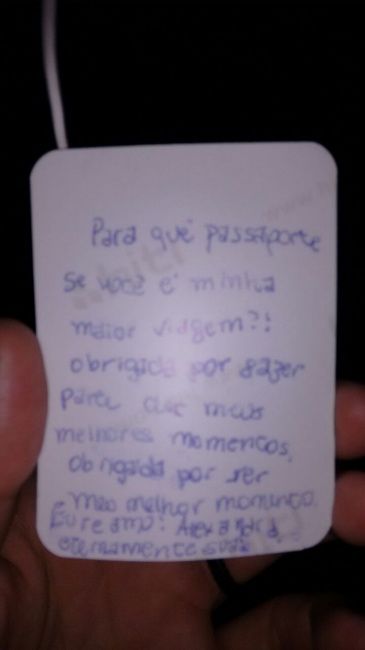 Para quê passaporte
se você é minha
maior viagem?!
obrigada por fazer
parte dos meus
melhores momentos,
obrigada por ser
meu melhor momento.
Eu te amo!
eternamente sua